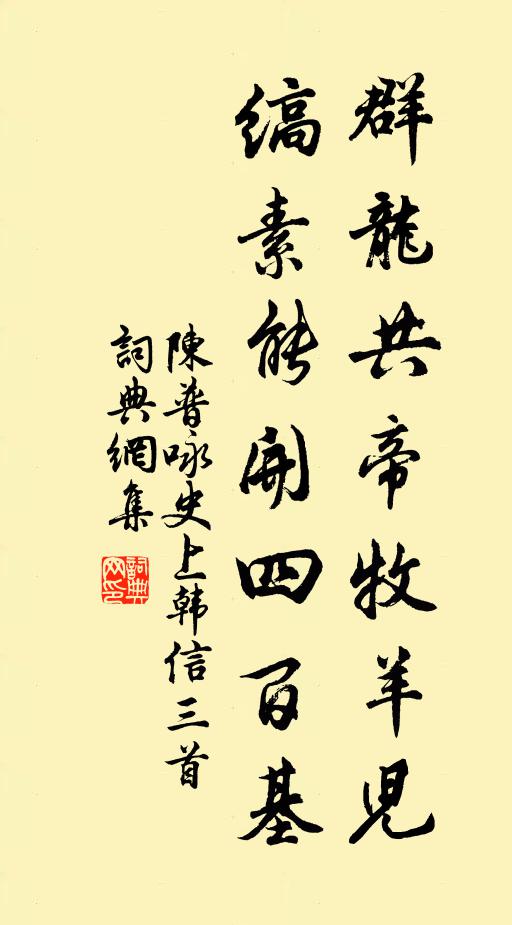 群龍共帝牧羊児
縞素能開四百基
陳普咏史上韩信三首
詞典網集
詞典网印